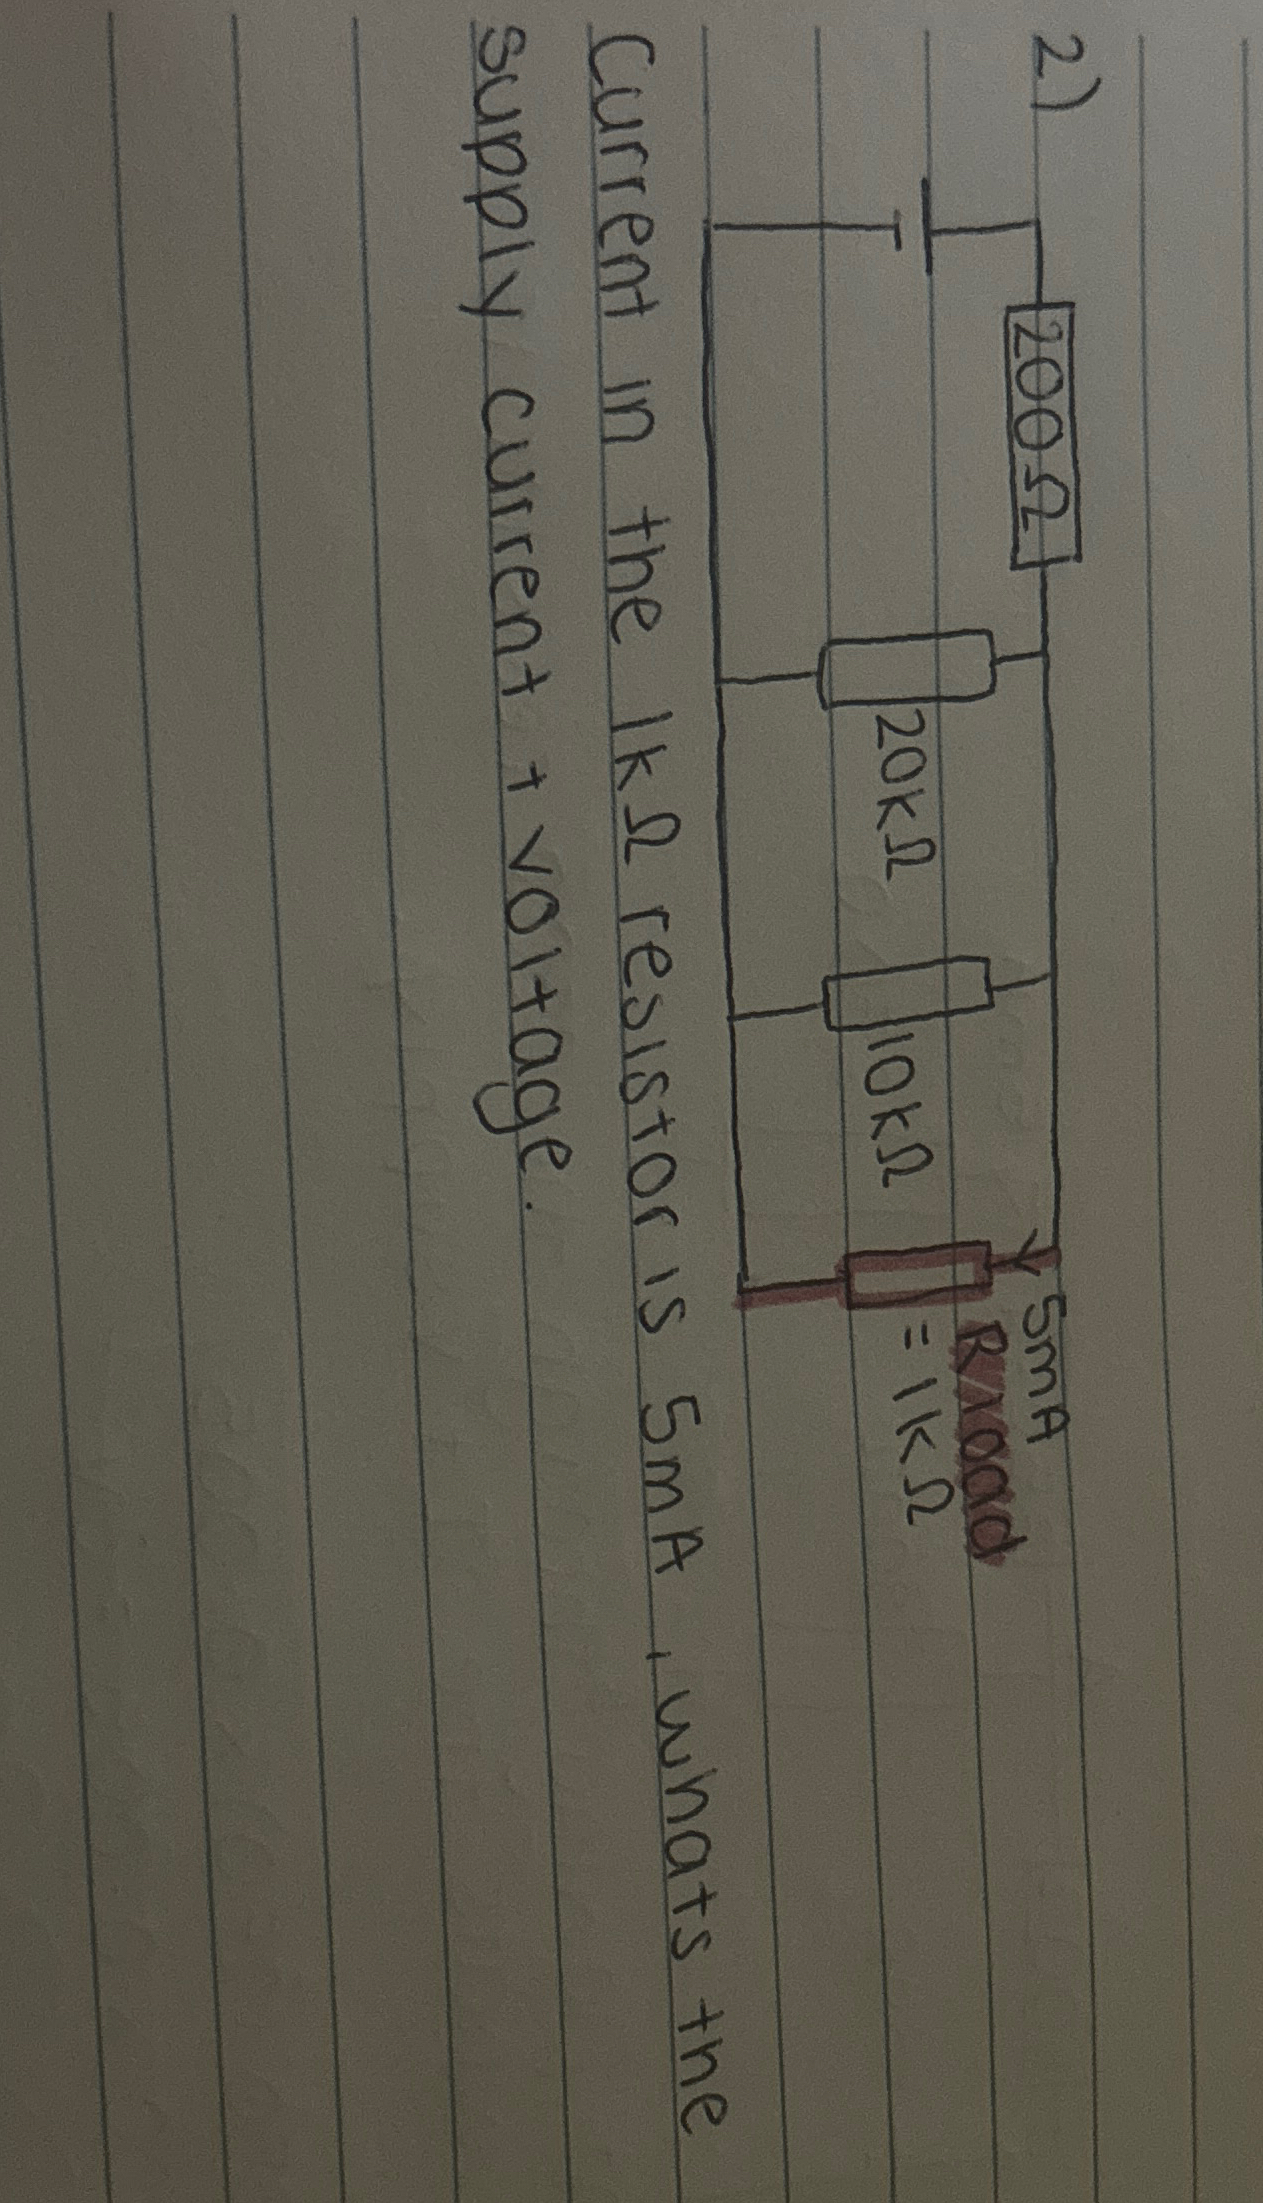 2)
200Ω
20kΩ
10kΩ
5mA
Rload
= 1kΩ
Current in the 1kΩ resistor is 5mA, whats the
supply current + voltage.